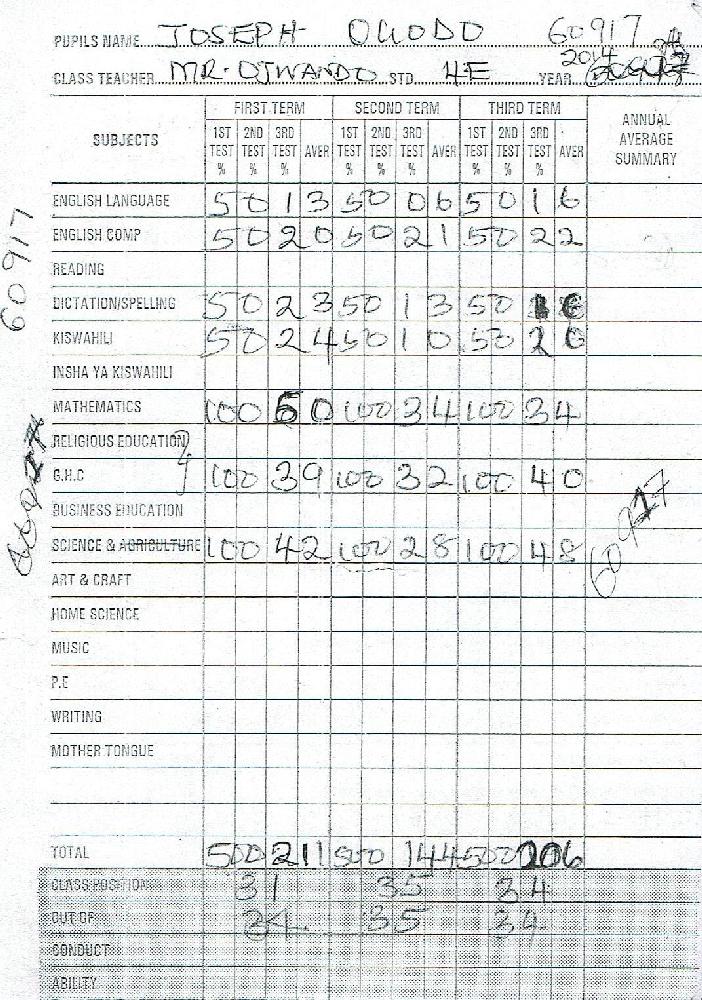 PUPILS NAME JOSEPH OGODO 60917
2014
CLASS TEACHER MR. OJWANDO STD. 4E YEAR
SUBJECTS FIRST TERM SECOND TERM THIRD TERM ANNUAL AVERAGE SUMMARY
1ST TEST % 2ND TEST % 3RD TEST % AVER 1ST TEST % 2ND TEST % 3RD TEST % AVER 1ST TEST % 2ND TEST % 3RD TEST % AVER
ENGLISH LANGUAGE 50 13 50 06 50 16
ENGLISH COMP 50 20 50 21 50 22
READING
DICTATION/SPELLING 50 23 50 13 50 16
KISWAHILI 50 24 50 10 50 20
INSHA YA KISWAHILI
MATHEMATICS 100 50 100 34 100 34
RELIGIOUS EDUCATION
G.H.C 100 39 100 32 100 40
BUSINESS EDUCATION
SCIENCE & AGRICULTURE 100 42 100 28 100 48
ART & CRAFT
HOME SCIENCE
MUSIC
P.E
WRITING
MOTHER TONGUE
TOTAL 500 211 500 144 500 206
CLASS POSITION 31 35 34
OUT OF 34 35 34
CONDUCT
ABILITY
60917
60917
60917